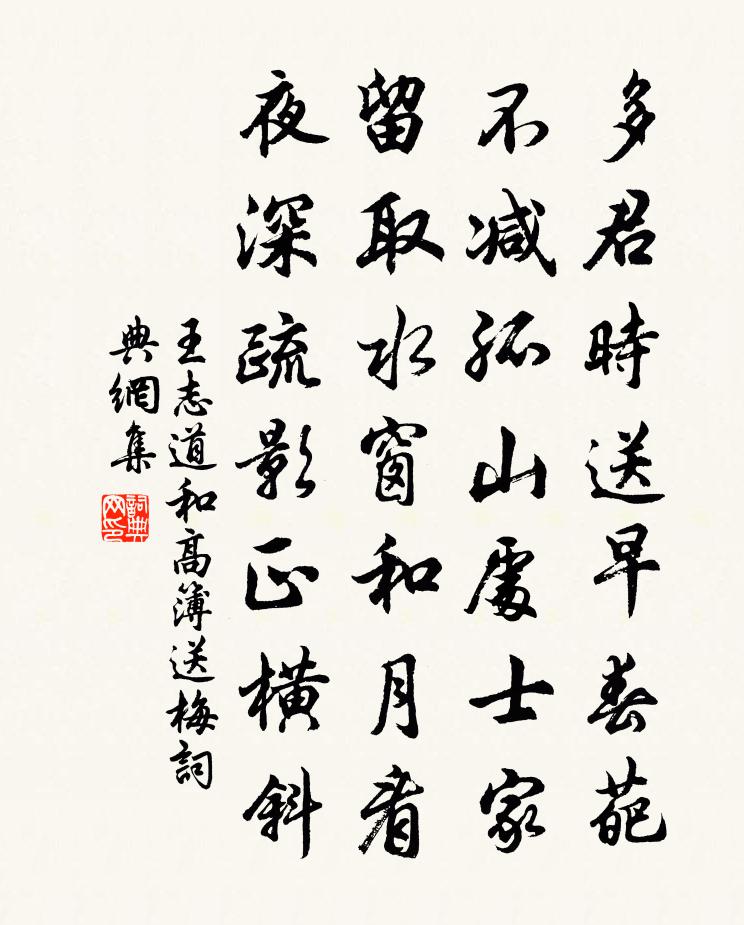 多君時送早春葩
不減孤山處士家
留取水窗和月看
夜深疏影正橫斜
王志道和高簿送梅詞
典網集
詞典網印